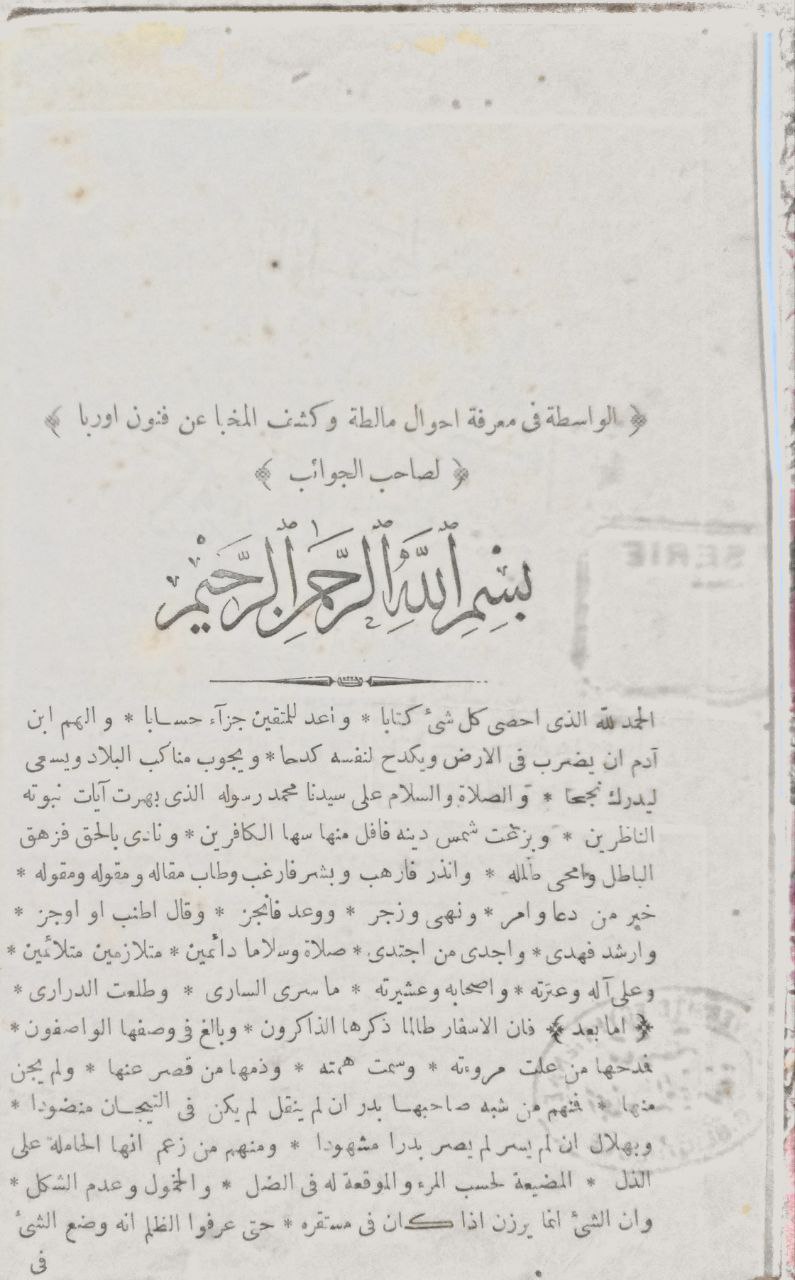 ﴿ الواسطة فى معرفة احوال مالطة وكشف المخبا عن فنون اوربا ﴾
﴿ لصاحب الجوائب ﴾
بِسْمِ ٱللَّهِ ٱلرَّحْمَٰنِ ٱلرَّحِيمِ
الحمد لله الذى احصى كل شئ كتابا * واعد للمتقين جزآء حسابا * والهم ابن
آدم ان يضرب فى الارض ويكدح لنفسه كدحا * ويجوب مناكب البلاد ويسعى
ليدرك نجحا * والصلاة والسلام على سيدنا محمد رسوله الذى بهرت آيات نبوته
الناظرين * وبزغت شمس دينه فافل منها سها الكافرين * ونادى بالحق فزهق
الباطل وامحى طلله * وانذر فارهب وبشر فارغب وطاب مقاله ومقوله ومقوله *
خير من دعا وامر * ونهى وزجر * ووعد فانجز * وقال اطنب او اوجز *
وارشد فهدى * واجدى من اجتدى * صلاة وسلاما دائمين * متلازمين متلائمين *
وعلى آله وعترته * واصحابه وعشيرته * ما سرى السارى * وطلعت الدرارى *
﴿ اما بعد ﴾ فان الاسفار طالما ذكرها الذاكرون * وبالغ فى وصفها الواصفون *
فمدحها من علت مروءته * وسمت همته * وذمها من قصر عنها * ولم يجن
منها * فمنهم من شبه صاحبها بدر ان لم ينقل لم يكن فى التيجان منضودا *
وبهلال ان لم يسر لم يصر بدرا مشهودا * ومنهم من زعم انها الحاملة على
الذل * المضيعة لحسب المرء والموقعة له فى الضل * والخمول وعدم الشكل *
وان الشئ انما يرزن اذا كان فى مستقره * حتى عرفوا الظلم انه وضع الشئ
فى
SERIE